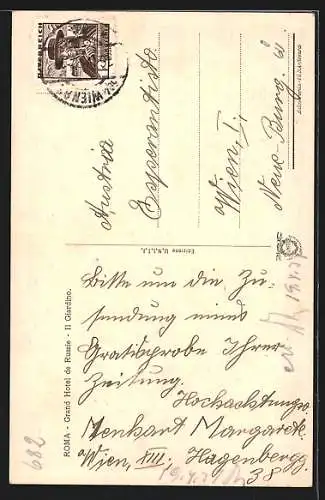 ÖSTERREICH
WIEN
Austria
Esperantisto
Wien, I.
Neue-Burg.
ROMA - Grand Hotel de Russie - Il Giardino.
Bitte um die Zu-
sendung eines
Gratisprobe Ihrer
Zeitung.
Hochachtungs.
Menhart Margarete
Wien, XIII. Hagenbergg.
38
682